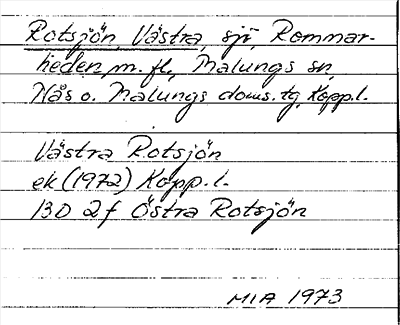 Rotsjön, Västra, sjö, Rommar-
heden m.fl., Malungs sn,
Nås o. Malungs doms. tg, Kopp.l.
Västra Rotsjön
ek (1972) Kopp.l.
13D 2f Östra Rotsjön
MIA 1973